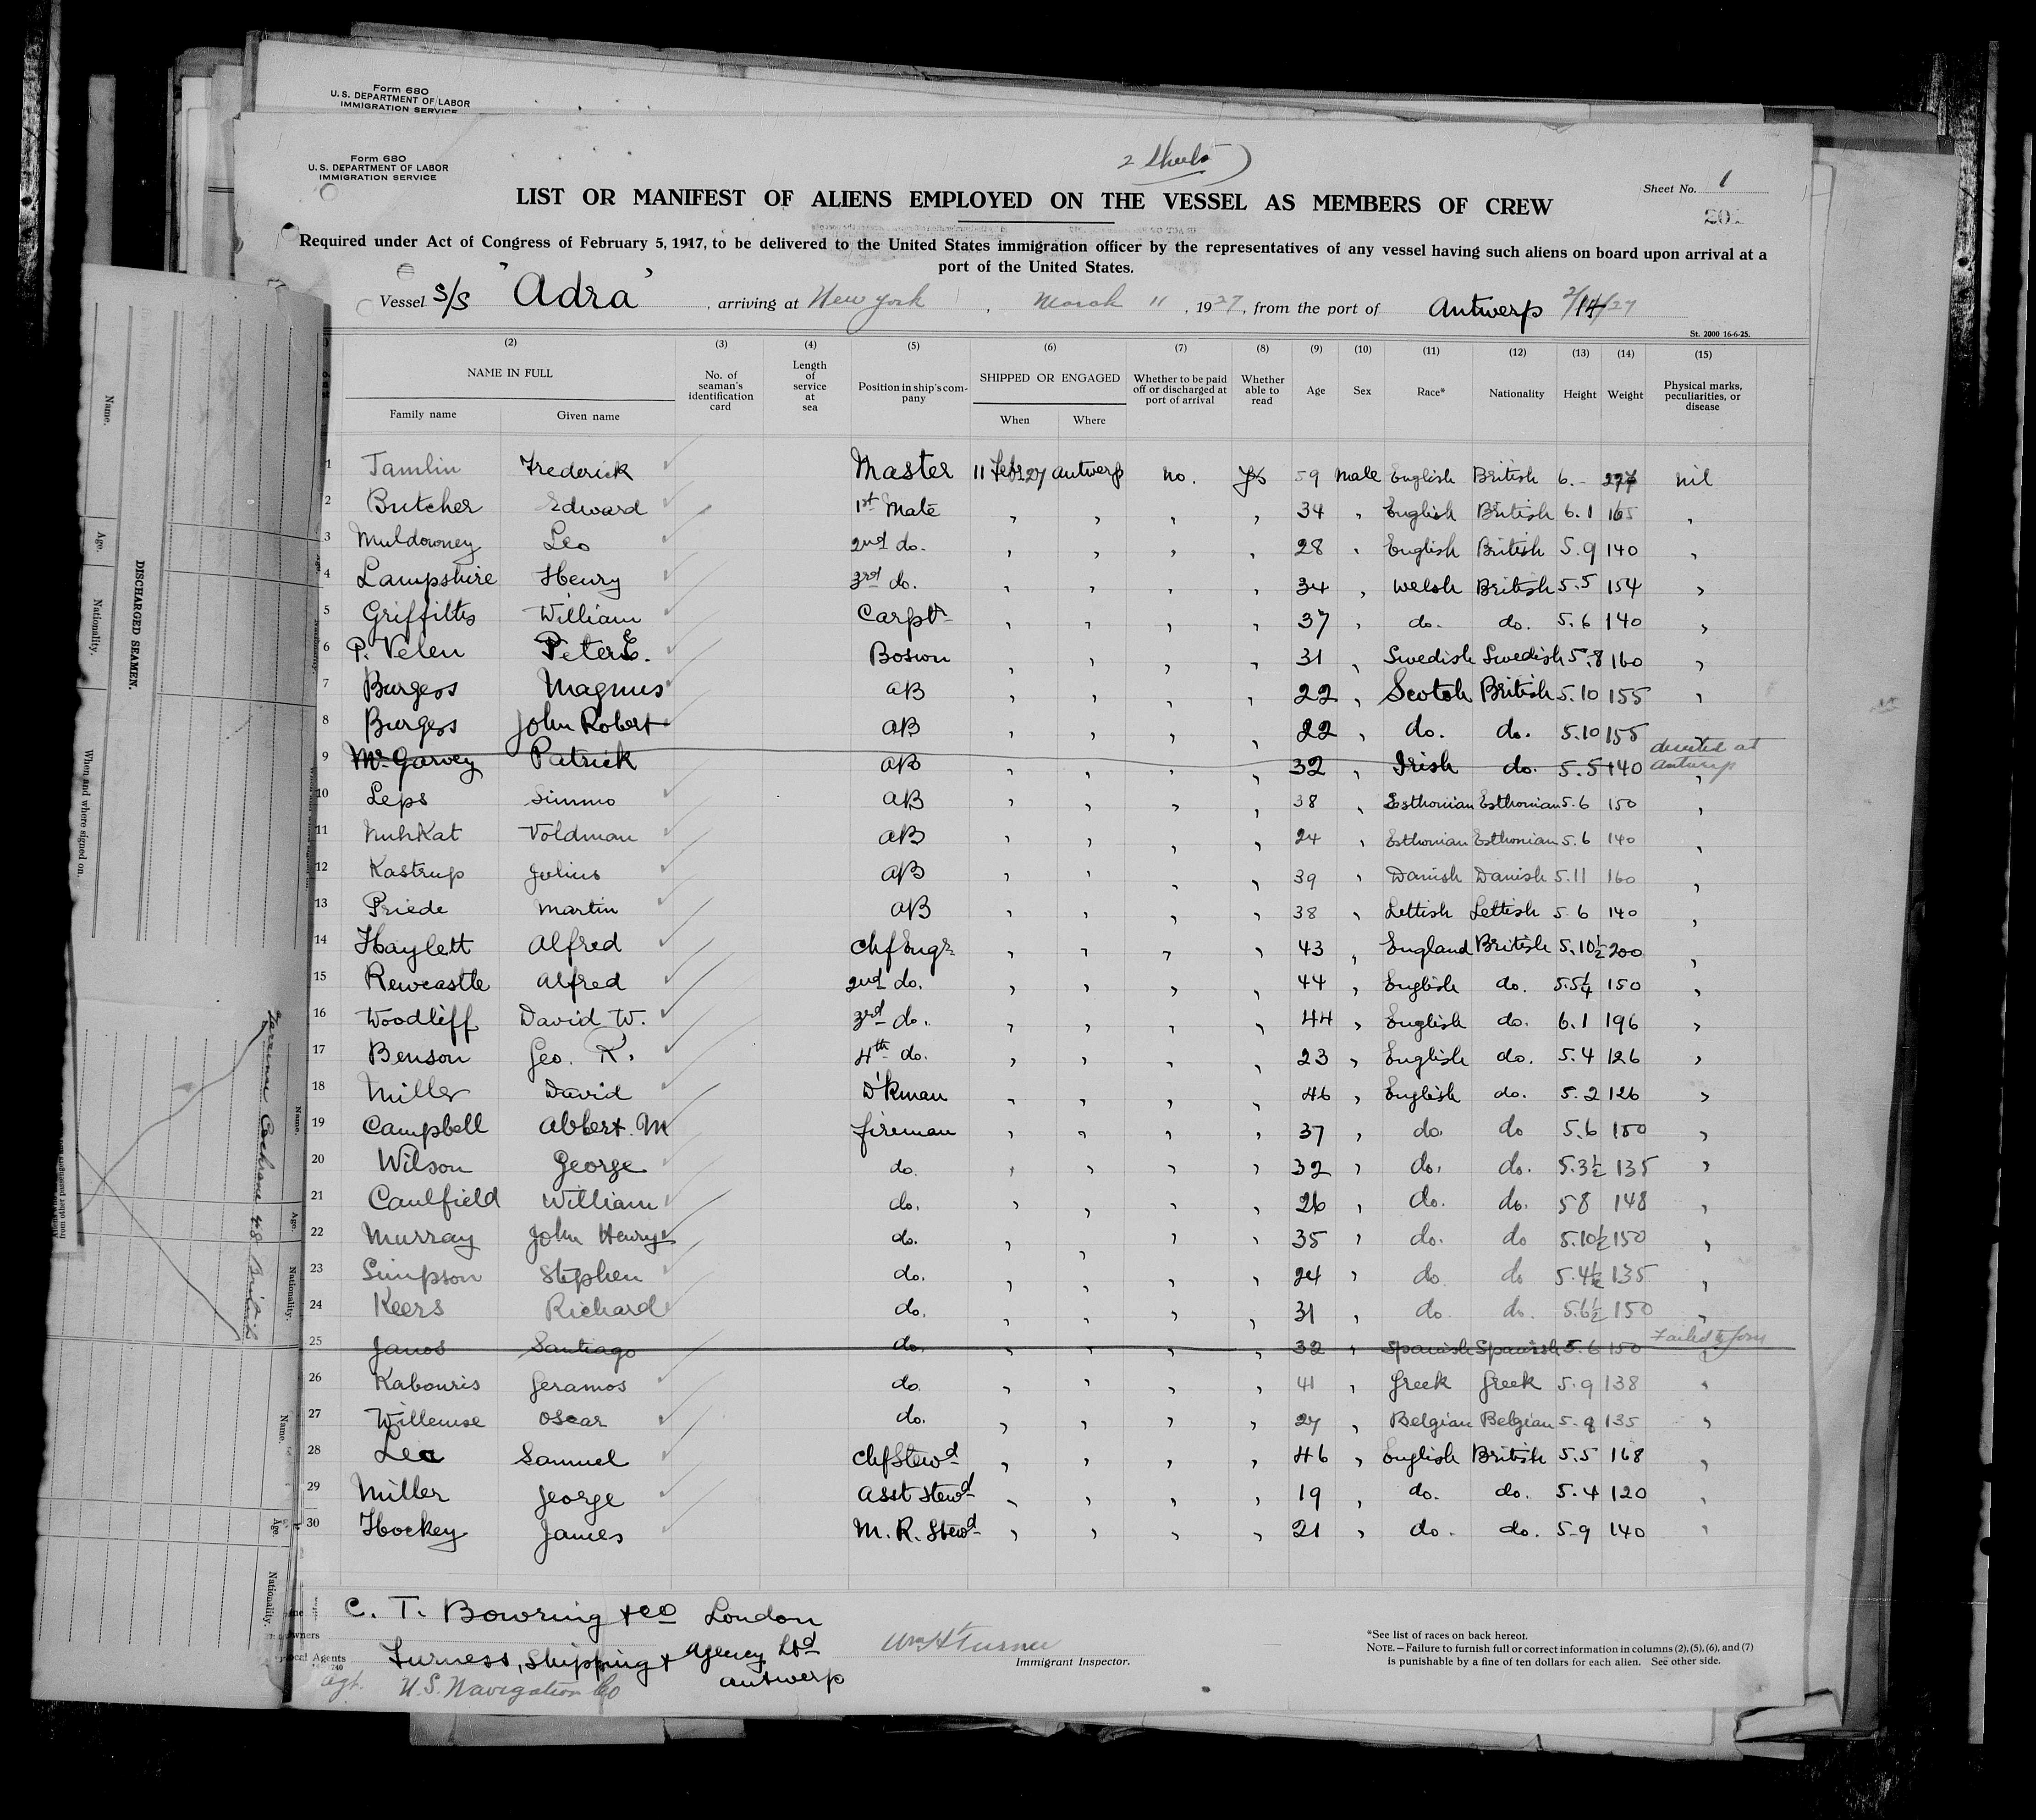 Form 680
U. S. DEPARTMENT OF LABOR
IMMIGRATION SERVICE
Form 680
U. S. DEPARTMENT OF LABOR
IMMIGRATION SERVICE
2 Sheets
Sheet No. 1
LIST OR MANIFEST OF ALIENS EMPLOYED ON THE VESSEL AS MEMBERS OF CREW
Required under Act of Congress of February 5, 1917, to be delivered to the United States immigration officer by the representatives of any vessel having such aliens on board upon arrival at a
port of the United States.
Vessel S/S "Adra", arriving at New York, March 11, 1927, from the port of Antwerp 2/14/27
St. 2000 16-6-25.
(2) (3) (4) (5) (6) (7) (8) (9) (10) (11) (12) (13) (14) (15)
NAME IN FULL No. of seaman's identification card Length of service at sea Position in ship's company SHIPPED OR ENGAGED Whether to be paid off or discharged at port of arrival Whether able to read Age Sex Race* Nationality Height Weight Physical marks, peculiarities, or disease
Family name Given name When Where
1 Tamlin Frederick Master 11 Feb 27 Antwerp no. yes 59 male English British 6.- 227 nil
2 Butcher Edward 1st Mate " " " " 34 " English British 6.1 165 "
3 Muldowney Leo 2nd do. " " " " 28 " English British 5.9 140 "
4 Lampshire Henry 3rd do. " " " " 34 " Welsh British 5.5 154 "
5 Griffiths William Carptr " " " " 37 " do. do. 5.6 140 "
6 P. Velen Peter E. Bosun " " " " 31 " Swedish Swedish 5.8 160 "
7 Burgess Magnus AB " " " " 22 " Scotch British 5.10 155 "
8 Burgess John Robert AB " " " " 22 " do. do. 5.10 155 "
9 McGarvey Patrick AB " " " " 32 " Irish do. 5.5 140 deserted at Antwerp
10 Leps Simmo AB " " " " 38 " Esthonian Esthonian 5.6 150 "
11 Voldman AB " " " " 24 " Esthonian Esthonian 5.6 140 "
12 Kastrup Julius AB " " " " 39 " Danish Danish 5.11 160 "
13 Priede Martin AB " " " " 38 " Lettish Lettish 5.6 140 "
14 Haylett Alfred Chf Engr " " " " 43 " England British 5.10½ 200 "
15 Rewcastle Alfred 2nd do. " " " " 44 " English do. 5.5¼ 150 "
16 Woodliff David W. 3rd do. " " " " 44 " English do. 6.1 196 "
17 Benson Geo. R. 4th do. " " " " 23 " English do. 5.4 126 "
18 Miller David D'kman " " " " 46 " English do. 5.2 126 "
19 Campbell Albert. M fireman " " " " 37 " do. do 5.6 150 "
20 Wilson George do. " " " " 32 " do. do. 5.3½ 135 "
21 Caulfield William do. " " " " 26 " do. do. 5 8 148 "
22 Murray John Henry do. " " " " 35 " do. do 5.10½ 150 "
23 Simpson Stephen do. " " " " 24 " do do 5.4½ 135 "
24 Keers Richard do. " " " " 31 " do do. 5.6½ 150 "
25 Janos Santiago do. " " " " 32 " Spanish Spanish 5.6 150 Failed to join
26 Kabouris Geramos do. " " " " 41 " Greek Greek 5.9 138 "
27 Willemse Oscar do. " " " " 27 " Belgian Belgian 5.8 135 "
28 Lea Samuel Chf Stewd " " " " 46 " English British 5.5 168 "
29 Miller George Asst Stewd " " " " 19 " do. do. 5.4 120 "
30 Hockey James M. R. Stewd " " " " 21 " do. do. 5-9 140 "
C. T. Bowring & Co London
Owners
Furness, Shipping & Agency Ltd Antwerp
Local Agents
Agt. U.S. Navigation Co
Wm H Turner
Immigrant Inspector.
*See list of races on back hereof.
NOTE.—Failure to furnish full or correct information in columns (2), (5), (6), and (7)
is punishable by a fine of ten dollars for each alien. See other side.
DISCHARGED SEAMEN.
Name.
Age.
Nationality.
When and where signed on.
Name.
Age.
Nationality.
Name.
Age.
Nationality.
Cochrane 48 British